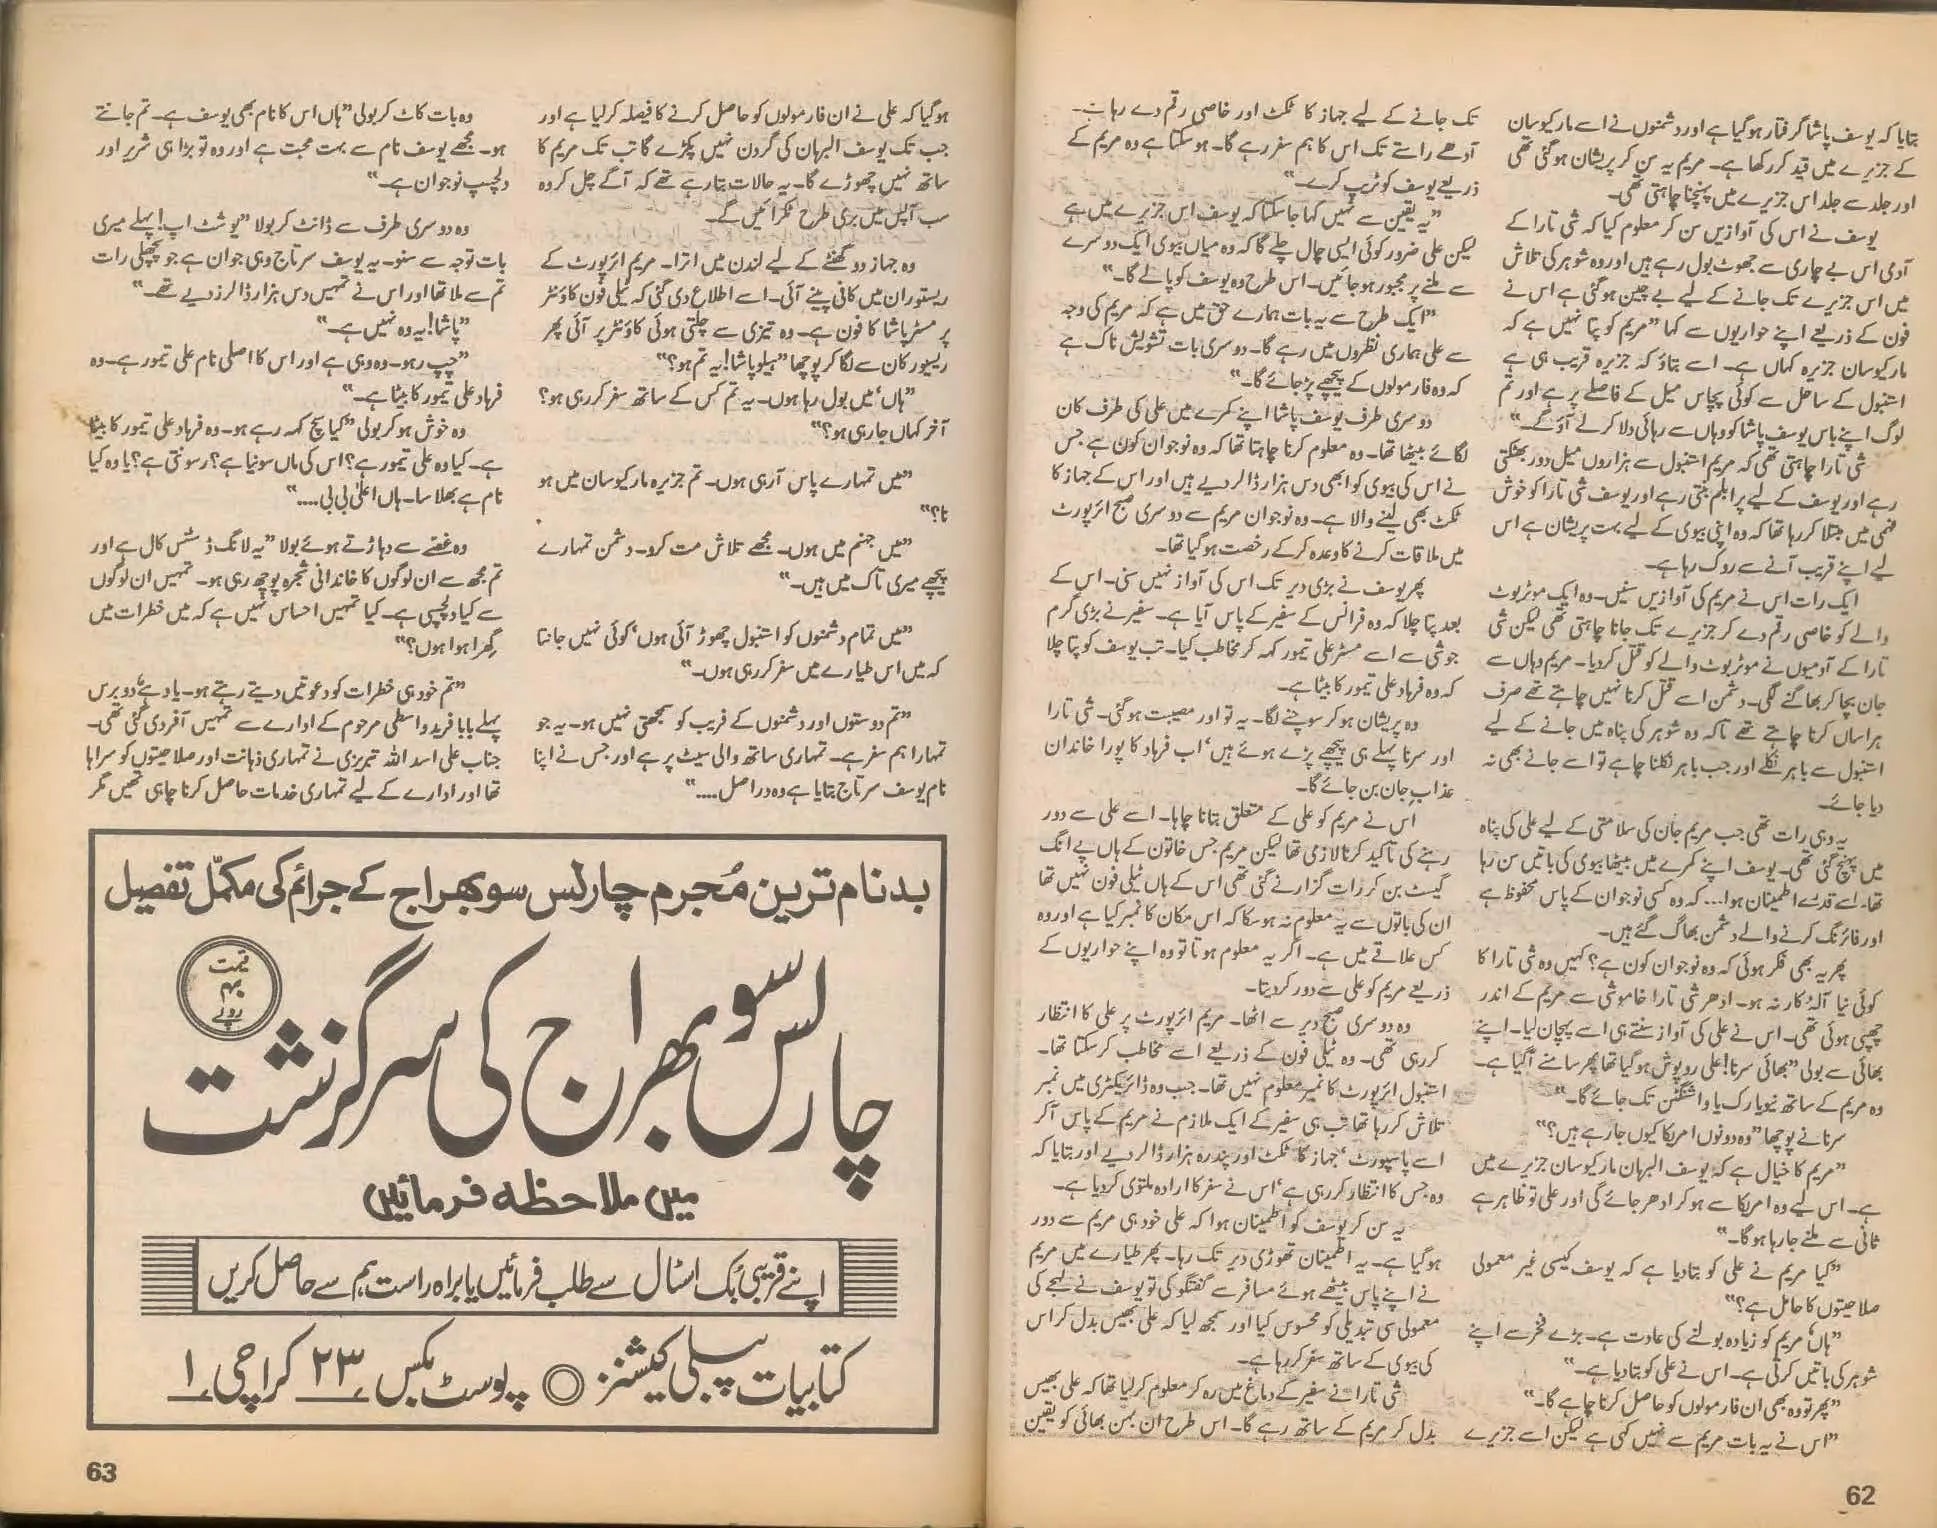 بتایا کہ یوسف پاشا گرفتار ہو گیا ہے اور دشمنوں نے اسے مارکیوسان
کے جزیرے میں قید کر رکھا ہے۔ مریم یہ سن کر پریشان ہو گئی تھی
اور جلد سے جلد اس جزیرے میں پہنچنا چاہتی تھی۔
یوسف نے اس کی آوازیں سن کر معلوم کیا کہ شی تارا کے
آدمی اس بے چاری سے جھوٹ بول رہے ہیں اور وہ شوہر کی تلاش
میں اس جزیرے تک جانے کے لیے بے چین ہو گئی ہے اس نے
فون کے ذریعے اپنے حواریوں سے کہا ”مریم کو پتا نہیں ہے کہ
مارکیوسان جزیرہ کہاں ہے۔ اسے بتاؤ کہ جزیرہ قریب ہی ہے
استنبول کے ساحل سے کوئی پچاس میل کے فاصلے پر ہے اور تم
لوگ اپنے باس یوسف پاشا کو وہاں سے رہائی دلا کر لے آؤ گے۔“
شی تارا چاہتی تھی کہ مریم استنبول سے ہزاروں میل دور بھٹکتی
رہے اور یوسف کے لیے پرابلم بنتی رہے اور یوسف شی تارا کو خوش
فہمی میں مبتلا کر رہا تھا کہ وہ اپنی بیوی کے لیے بہت پریشان ہے اس
لیے اپنے قریب آنے سے روک رہا ہے۔
ایک رات اس نے مریم کی آوازیں سنیں۔ وہ ایک موٹر بوٹ
والے کو خاصی رقم دے کر جزیرے تک جانا چاہتی تھی لیکن شی
تارا کے آدمیوں نے موٹر بوٹ والے کو قتل کر دیا۔ مریم وہاں سے
جان بچا کر بھاگنے لگی۔ دشمن اسے قتل کرنا نہیں چاہتے تھے صرف
ہراساں کرنا چاہتے تھے تاکہ وہ شوہر کی پناہ میں جانے کے لیے
استنبول سے باہر نکلے اور جب باہر نکلنا چاہے تو اسے جانے بھی نہ
دیا جائے۔
یہ وہی رات تھی جب مریم جان کی سلامتی کے لیے علی کی پناہ
میں پہنچ گئی تھی۔ یوسف اپنے کمرے میں بیٹھا بیوی کی باتیں سن رہا
تھا۔ اسے قدرے اطمینان ہوا... کہ وہ کسی نوجوان کے پاس محفوظ ہے
اور فائرنگ کرنے والے دشمن بھاگ گئے ہیں۔
پھر یہ بھی فکر ہوئی کہ وہ نوجوان کون ہے؟ کہیں وہ شی تارا کا
کوئی نیا آلۂ کار نہ ہو۔ ادھر شی تارا خاموشی سے مریم کے اندر
چھپی ہوئی تھی۔ اس نے علی کی آواز سنتے ہی اسے پہچان لیا۔ اپنے
بھائی سے بولی ”بھائی سرنا! علی روپوش ہو گیا تھا پھر سامنے آگیا ہے۔
وہ مریم کے ساتھ نیویارک یا واشنگٹن تک جائے گا۔“
سرنا نے پوچھا ”وہ دونوں امریکا کیوں جا رہے ہیں؟“
”مریم کا خیال ہے کہ یوسف البرہان مارکیوسان جزیرے میں
ہے۔ اس لیے وہ امریکا سے ہو کر ادھر جائے گی اور علی تو ظاہر ہے
ثانی سے ملنے جا رہا ہو گا۔“
”کیا مریم نے علی کو بتا دیا ہے کہ یوسف کیسی غیر معمولی
صلاحیتوں کا حامل ہے؟“
”ہاں، مریم کو زیادہ بولنے کی عادت ہے۔ بڑے فخر سے اپنے
شوہر کی باتیں کرتی ہے۔ اس نے علی کو بتا دیا ہے۔“
”پھر تو وہ بھی ان فارمولوں کو حاصل کرنا چاہے گا۔“
”اس نے یہ بات مریم سے نہیں کہی ہے لیکن اسے جزیرے
تک جانے کے لیے جہاز کا ٹکٹ اور خاصی رقم دے رہا ہے۔
آدھے راستے تک اس کا ہم سفر رہے گا۔ ہو سکتا ہے وہ مریم کے
ذریعے یوسف کو ٹریپ کرے۔“
”یہ یقین سے نہیں کہا جا سکتا کہ یوسف اس جزیرے میں ہے
لیکن علی ضرور کوئی ایسی چال چلے گا کہ وہ میاں بیوی ایک دوسرے
سے ملنے پر مجبور ہو جائیں۔ اس طرح وہ یوسف کو پالے گا۔“
”ایک طرح سے یہ بات ہمارے حق میں ہے کہ مریم کی وجہ
سے علی ہماری نظروں میں رہے گا۔ دوسری بات تشویش ناک ہے
کہ وہ فارمولوں کے پیچھے پڑ جائے گا۔“
دوسری طرف یوسف پاشا اپنے کمرے میں علی کی طرف کان
لگائے بیٹھا تھا۔ وہ معلوم کرنا چاہتا تھا کہ وہ نوجوان کون ہے جس
نے اس کی بیوی کو ابھی دس ہزار ڈالر دیے ہیں اور اس کے جہاز کا
ٹکٹ بھی لینے والا ہے۔ وہ نوجوان مریم سے دوسری صبح ائرپورٹ
میں ملاقات کرنے کا وعدہ کر کے رخصت ہو گیا تھا۔
پھر یوسف نے بڑی دیر تک اس کی آواز نہیں سنی۔ اس کے
بعد پتا چلا کہ وہ فرانس کے سفیر کے پاس آیا ہے۔ سفیر نے بڑی گرم
جوشی سے اسے مسٹر علی تیمور کہہ کر مخاطب کیا۔ تب یوسف کو پتا چلا
کہ وہ فرہاد علی تیمور کا بیٹا ہے۔
وہ پریشان ہو کر سوچنے لگا۔ یہ تو اور مصیبت ہو گئی۔ شی تارا
اور سرنا پہلے ہی پیچھے پڑے ہوئے ہیں، اب فرہاد کا پورا خاندان
عذاب جان بن جائے گا۔
اس نے مریم کو علی کے متعلق بتانا چاہا۔ اسے علی سے دور
رہنے کی تاکید کرنا لازمی تھا لیکن مریم جس خاتون کے ہاں پے انگ
گیسٹ بن کر رات گزارنے گئی تھی اس کے ہاں ٹیلی فون نہیں تھا
ان کی باتوں سے یہ معلوم نہ ہو سکا کہ اس مکان کا نمبر کیا ہے اور وہ
کس علاقے میں ہے۔ اگر یہ معلوم ہوتا تو وہ اپنے حواریوں کے
ذریعے مریم کو علی سے دور کر دیتا۔
وہ دوسری صبح دیر سے اٹھا۔ مریم ائرپورٹ پر علی کا انتظار
کر رہی تھی۔ وہ ٹیلی فون کے ذریعے اسے مخاطب کر سکتا تھا۔
استنبول ائرپورٹ کا نمبر معلوم نہیں تھا۔ جب وہ ڈائریکٹری میں نمبر
تلاش کر رہا تھا تب ہی سفیر کے ایک ملازم نے مریم کے پاس آکر
اسے پاسپورٹ، جہاز کا ٹکٹ اور پندرہ ہزار ڈالر دیے اور بتایا کہ
وہ جس کا انتظار کر رہی ہے، اس نے سفر کا ارادہ ملتوی کر دیا ہے۔
یہ سن کر یوسف کو اطمینان ہوا کہ علی خود ہی مریم سے دور
ہو گیا ہے۔ یہ اطمینان تھوڑی دیر تک رہا۔ پھر طیارے میں مریم
نے اپنے پاس بیٹھے ہوئے مسافر سے گفتگو کی تو یوسف نے لہجے کی
معمولی سی تبدیلی کو محسوس کیا اور سمجھ لیا کہ علی بھیس بدل کر اس
کی بیوی کے ساتھ سفر کر رہا ہے۔
شی تارا نے سفیر کے دماغ میں رہ کر معلوم کر لیا تھا کہ علی بھیس
بدل کر مریم کے ساتھ رہے گا۔ اس طرح ان بہن بھائی کو یقین
62
ہو گیا کہ علی نے ان فارمولوں کو حاصل کرنے کا فیصلہ کر لیا ہے اور
جب تک یوسف البرہان کی گردن نہیں پکڑے گا تب تک مریم کا
ساتھ نہیں چھوڑے گا۔ یہ حالات بتا رہے تھے کہ آگے چل کر وہ
سب آپس میں بری طرح ٹکرائیں گے۔
وہ جہاز دو گھنٹے کے لیے لندن میں اترا۔ مریم ائرپورٹ کے
ریستوران میں کافی پینے آئی۔ اسے اطلاع دی گئی کہ ٹیلی فون کاؤنٹر
پر مسٹر پاشا کا فون ہے۔ وہ تیزی سے چلتی ہوئی کاؤنٹر پر آئی پھر
ریسیور کان سے لگا کر پوچھا ”ہیلو پاشا! یہ تم ہو؟“
”ہاں، میں بول رہا ہوں۔ یہ تم کس کے ساتھ سفر کر رہی ہو؟
آخر کہاں جا رہی ہو؟“
”میں تمہارے پاس آ رہی ہوں۔ تم جزیرہ مارکیوسان میں ہو
نا؟“
”میں جہنم میں ہوں۔ مجھے تلاش مت کرو۔ دشمن تمہارے
پیچھے میری تاک میں ہیں۔“
”میں تمام دشمنوں کو استنبول چھوڑ آئی ہوں، کوئی نہیں جانتا
کہ میں اس طیارے میں سفر کر رہی ہوں۔“
”تم دوستوں اور دشمنوں کے فریب کو سمجھتی نہیں ہو۔ یہ جو
تمہارا ہم سفر ہے۔ تمہاری ساتھ والی سیٹ پر ہے اور جس نے اپنا
نام یوسف سرتاج بتایا ہے وہ دراصل....“
وہ بات کاٹ کر بولی ”ہاں اس کا نام بھی یوسف ہے۔ تم جانتے
ہو۔ مجھے یوسف نام سے بہت محبت ہے اور وہ تو بڑا ہی شریر اور
دلچسپ نوجوان ہے۔“
وہ دوسری طرف سے ڈانٹ کر بولا ”یو شٹ اپ! پہلے میری
بات توجہ سے سنو۔ یہ یوسف سرتاج وہی جوان ہے جو پچھلی رات
تم سے ملا تھا اور اس نے تمہیں دس ہزار ڈالرز دیے تھے۔“
”پاشا! یہ وہ نہیں ہے۔“
”چپ رہو۔ وہ وہی ہے اور اس کا اصلی نام علی تیمور ہے۔ وہ
فرہاد علی تیمور کا بیٹا ہے۔“
وہ خوش ہو کر بولی ”کیا سچ کہہ رہے ہو۔ وہ فرہاد علی تیمور کا بیٹا
ہے۔ کیا وہ علی تیمور ہے؟ اس کی ماں سونیا ہے؟ رسونتی ہے؟ یا وہ کیا
نام ہے بھلا سا۔ ہاں اعلیٰ بی بی....“
وہ غصے سے دہاڑتے ہوئے بولا ”یہ لانگ ڈسٹنس کال ہے اور
تم مجھ سے ان لوگوں کا خاندانی شجرہ پوچھ رہی ہو۔ تمہیں ان لوگوں
سے کیا دلچسپی ہے۔ کیا تمہیں احساس نہیں ہے کہ میں خطرات میں
گھرا ہوا ہوں؟“
”تم خود ہی خطرات کو دعوتیں دیتے رہتے ہو۔ یاد ہے، دو برس
پہلے بابا فرید واسطی مرحوم کے ادارے سے تمہیں آفر دی گئی تھی۔
جناب علی اسد اللہ تبریزی نے تمہاری ذہانت اور صلاحیتوں کو سراہا
تھا اور ادارے کے لیے تمہاری خدمات حاصل کرنا چاہی تھیں مگر
بدنام ترین مُجرم چارلس سوبھراج کے جرائم کی مکمّل تفصیل
قیمت
۴۰
روپے
چارلس سوبھراج کی سرگزشت
میں ملاحظہ فرمائیں
اپنے قریبی بُک اسٹال سے طلب فرمائیں یا براہ راست ہم سے حاصل کریں
کتابیات پبلی کیشنز ◎ پوسٹ بکس ۲۳ کراچی ۱
63